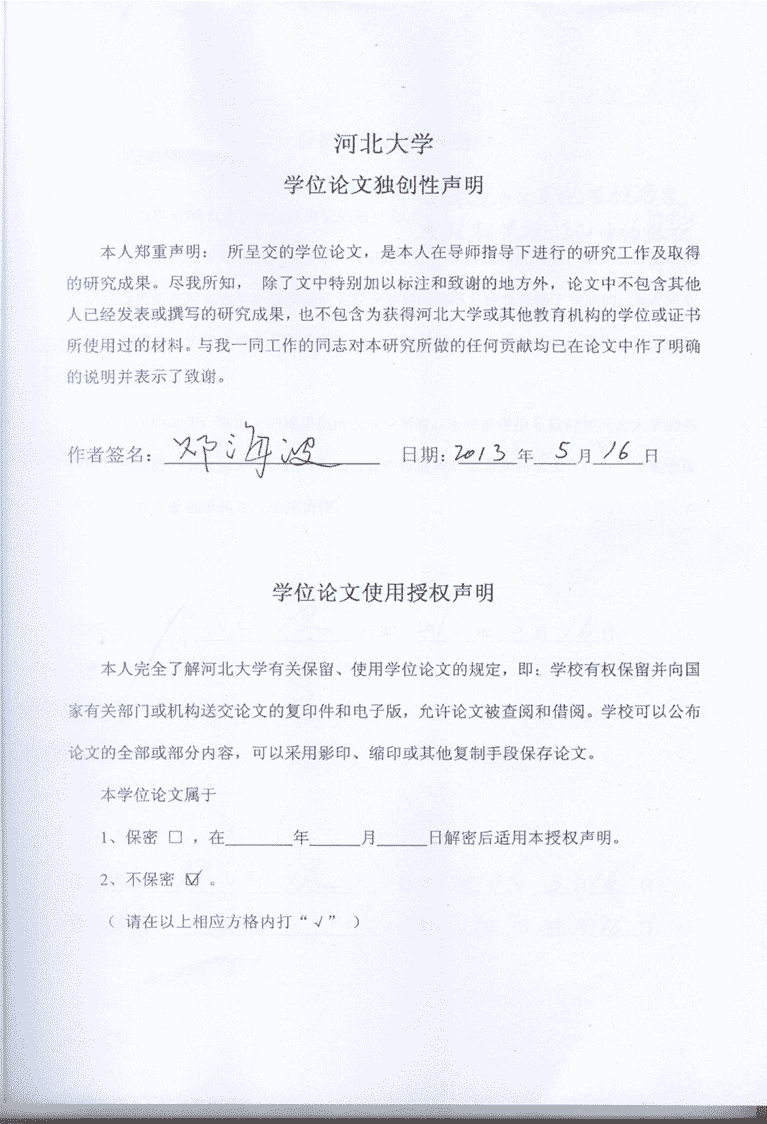 河北大学
学位论文独创性声明
本人郑重声明： 所呈交的学位论文，是本人在导师指导下进行的研究工作及取得
的研究成果。尽我所知， 除了文中特别加以标注和致谢的地方外，论文中不包含其他
人已经发表或撰写的研究成果，也不包含为获得河北大学或其他教育机构的学位或证书
所使用过的材料。与我一同工作的同志对本研究所做的任何贡献均已在论文中作了明确
的说明并表示了致谢。
作者签名：邓海波 日期：2013年5月16日
学位论文使用授权声明
本人完全了解河北大学有关保留、使用学位论文的规定，即：学校有权保留并向国
家有关部门或机构送交论文的复印件和电子版，允许论文被查阅和借阅。学校可以公布
论文的全部或部分内容，可以采用影印、缩印或其他复制手段保存论文。
本学位论文属于
1、保密 □ ，在______年_____月_____日解密后适用本授权声明。
2、不保密 ☑ 。
（ 请在以上相应方格内打“√” ）